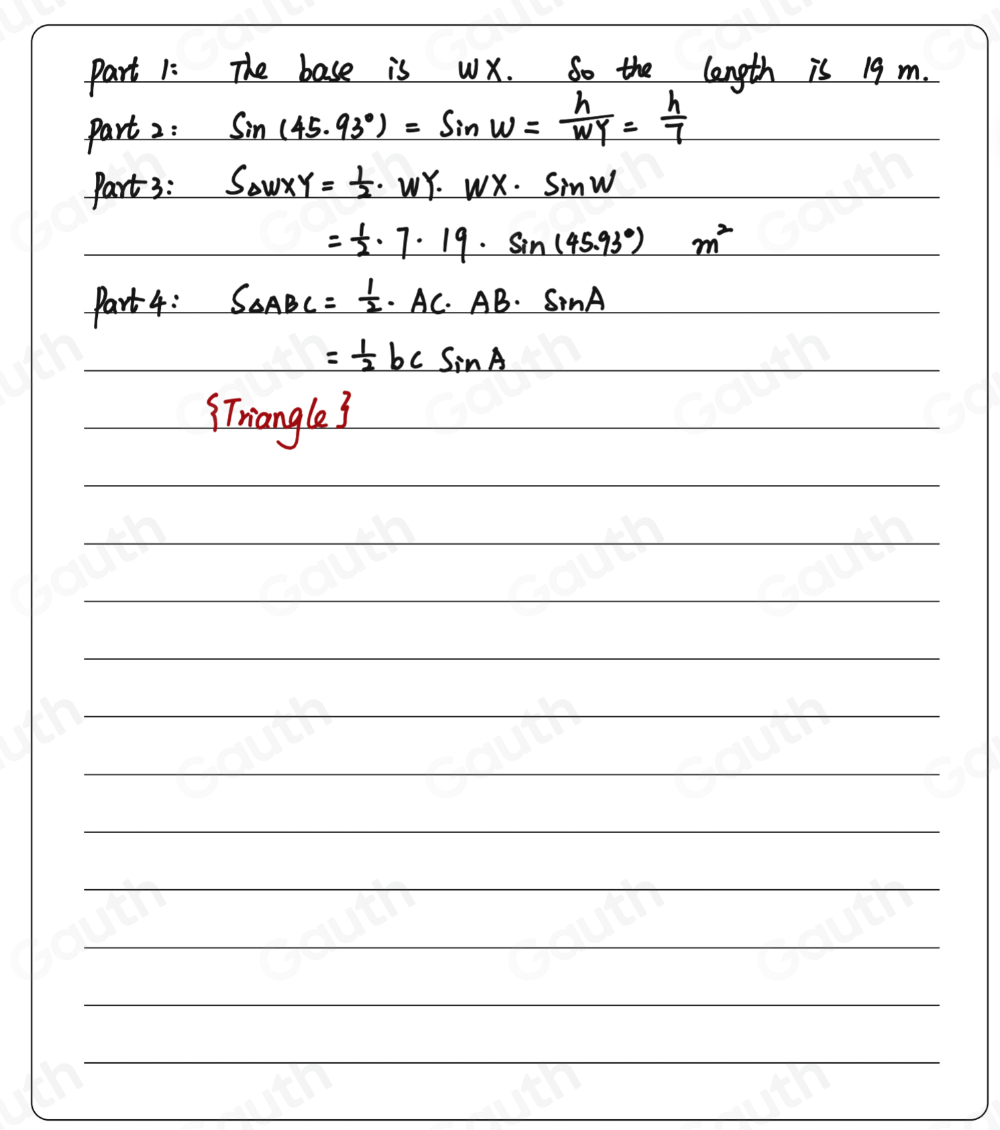 Part 1: The base is WX. So the length is 19 m.
Part 2: Sin (45.93°) = Sin W = h/WY = h/7
Part 3: S△WXY = 1/2 · WY · WX · Sin W
= 1/2 · 7 · 19 · Sin (45.93°) m²
Part 4: S△ABC = 1/2 · AC · AB · Sin A
= 1/2 bc Sin A
{Triangle}